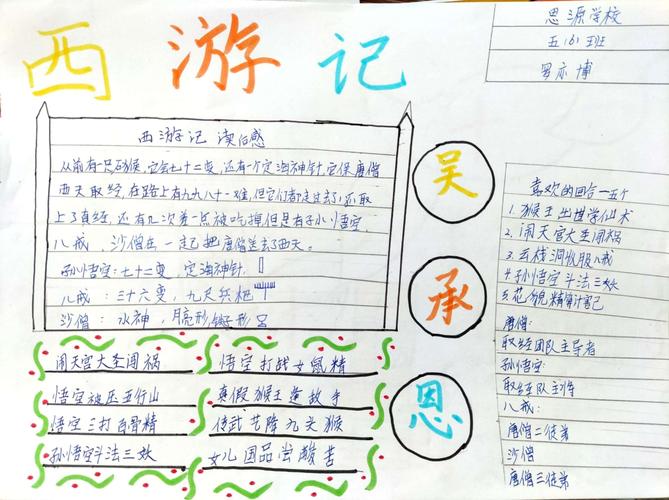 西游记
思源学校
五(6)班
罗亦博
西游记 读后感
从前有一只石猴,它会七十二变,还有一个定海神针,它保唐僧
西天取经,在路上有九九八十一难,但它们都走过去了,还取
上了真经,还有几次差一点被吃掉但是有了小心悟空,
八戒,沙僧在一起把唐僧送去了西天。
孙悟空:七十二变,定海神针
八戒:三十六变,九尺兵耙
沙僧:水神,月亮形铲子形
吴
承
恩
喜欢的回合一五个
1.猴王出世学仙术
2.闹天宫大圣闯祸
3.云栈洞收服八戒
4.孙悟空斗法三妖
5.花貌精算计害己
唐僧:
取经团队主导者
孙悟空:
取经队主将
八戒:
唐僧二徒弟
沙僧
唐僧三徒弟
闹天宫大圣闯祸
悟空打战女鼠精
悟空被压五行山
真假猴王逢敌手
悟空三打白骨精
使武艺降九头猴
孙悟空斗法三妖
女儿国品尝酸苦